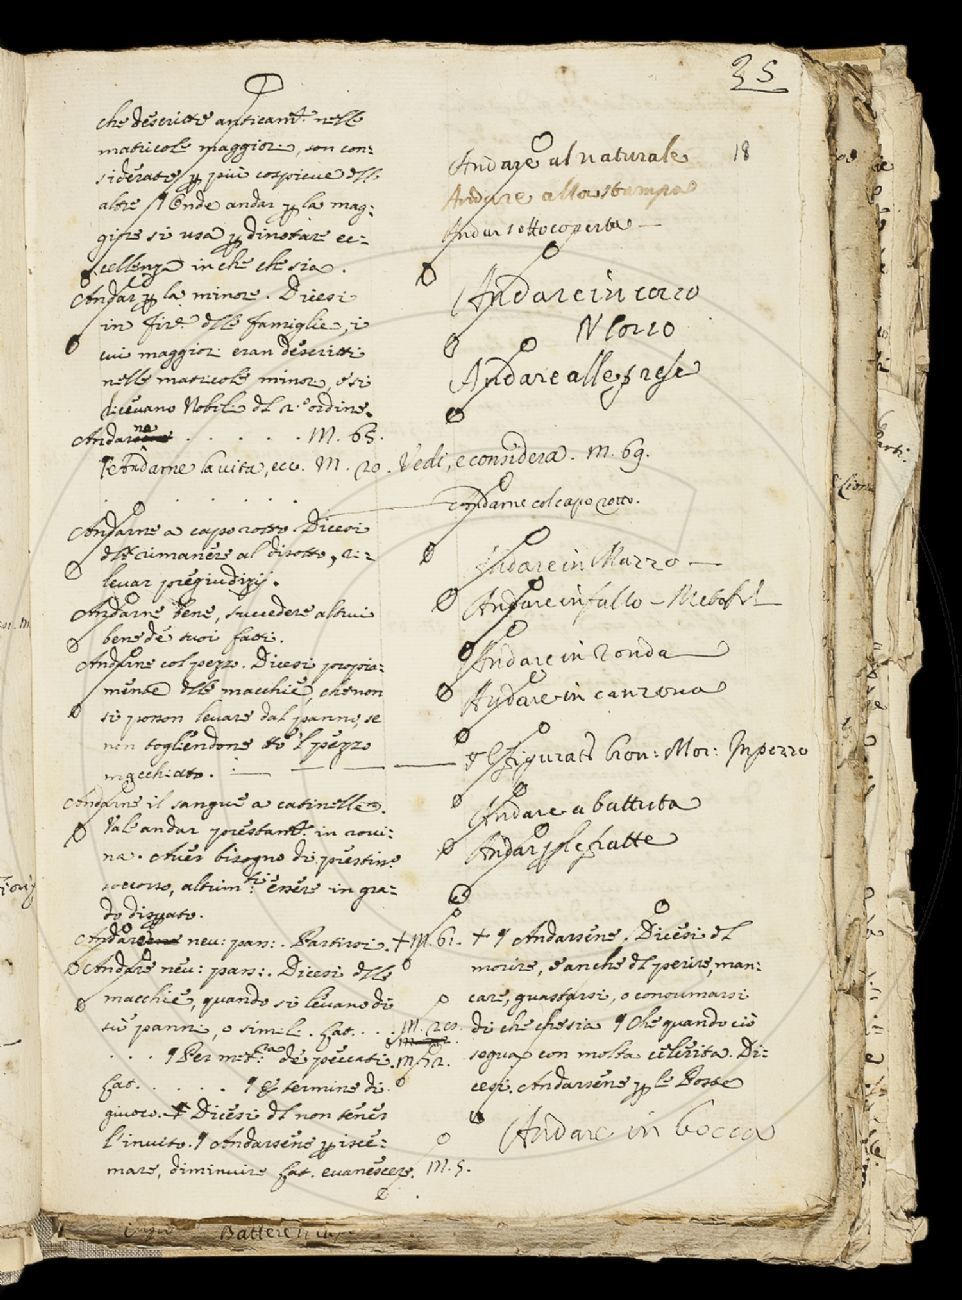 35
18
che descritte anticam.te nelle
matricole maggiori, son con:
siderate p più cospicue dlle
altre ¶ Onde andar p la mag:
giore si usa p dinotare ec:
cellenza in che che sia.
Andar p la minore. Dicesi
in Fir.e dlle famiglie, i
cui maggiori eran descritti
nelle matricole minori, e si
dicevano Nobili dl 2.o ordine.
Andarne . . . . . M. 65.
Andarne la vita, ecc. M. 20. Vedi, e considera. M. 69.
Andarne a capo rotto. Dicesi
dl rimanere al disotto, ri:
levar pregiudizij.
Andarne bene, succedere altrui
bene de suoi fatti.
Andarne col pezzo. Dicesi propia:
mente dlle macchie, che non
si posson levare dal panno, se
non togliendone tto 'l pezzo
macchiato.
Andarne il sangue a catinelle.
Vale andar prestam.te in rovi:
na. Aver bisogno di prestiss.o
soccorso, altrim.ti essere in gra:
do disperato.
Andare neu: pass: Partirsi. + M. 61.
Andare neu: pass: Dicesi dlle
macchie, quando si levano di
su' panni, o simile. Lat. . . M. 200.
. . . ¶ Per met.ra de' peccati. M. 72.
Lat. . . . . . ¶ È termine di
giuoco. + Dicesi dl non tener
l'invito. ¶ Andarsene p isce:
mare, diminuire Lat. evanescere. M. 5.
Andare al naturale
Andare alla stampa
Andar sottocoperta —
Andare in cocco
N Cocco
Andare alle prese
Andarne col capo rotto.
Andare in Mazzo —
Andare in fallo —
Andare in ronda —
Andare in canzona
Figurat.e Mor: In pezzo
Andare a battuta
Andar p le fratte
+ ¶ Andarsene. Dicesi dl
morire, e anche dl perire, man:
care, guastarsi, o consumarsi
di che che sia ¶ Che quando ciò
segua con molta celerità. Di:
cesi. Andarsene p le Poste
Andare in bocca